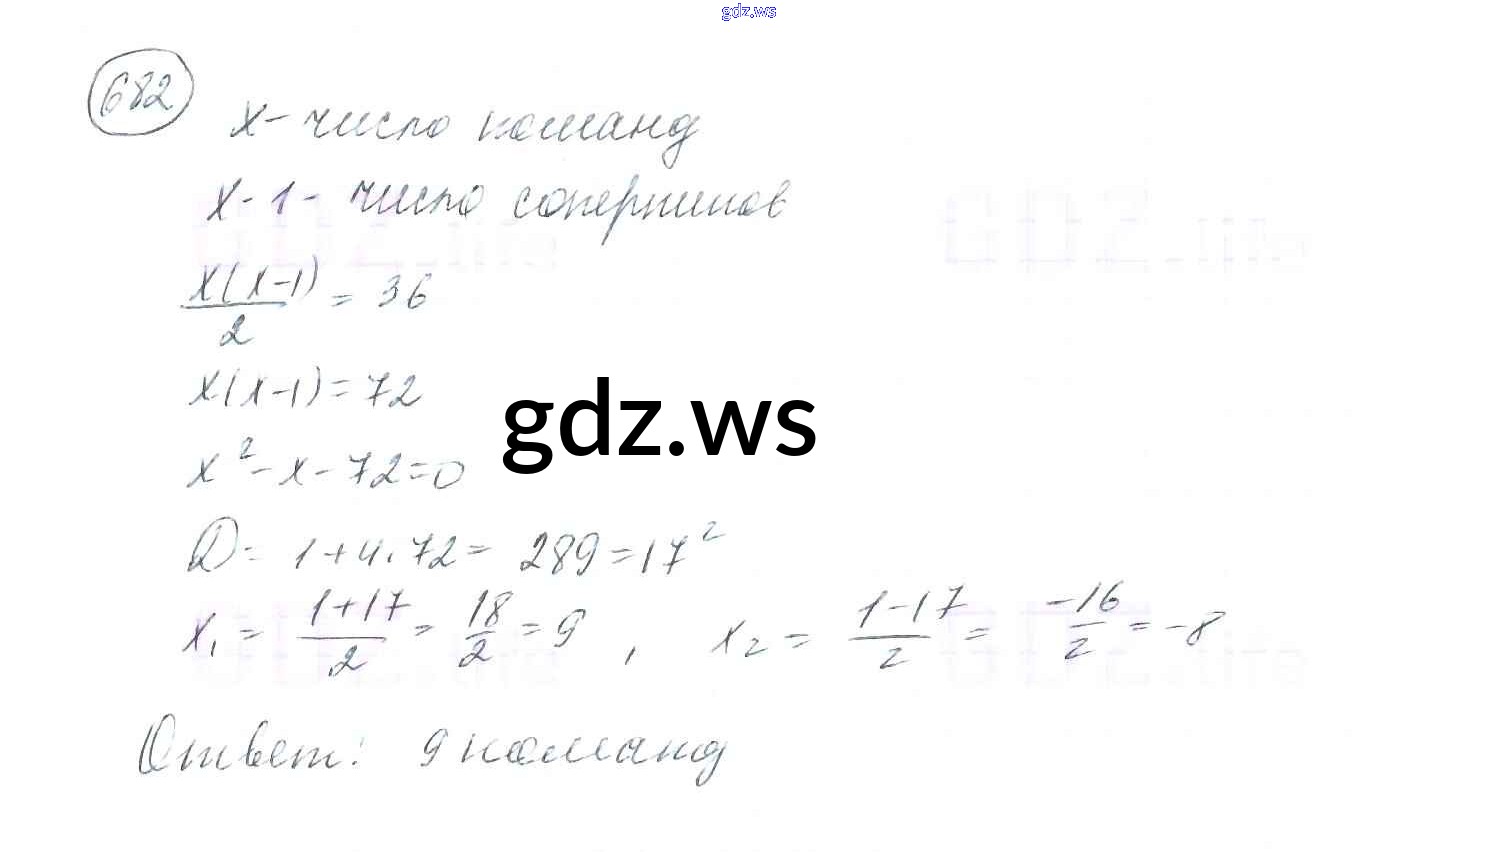 gdz.ws
682
x - число команд
x - 1 - число соперников
x(x-1)/2 = 36
x(x-1) = 72
gdz.ws
x² - x - 72 = 0
D = 1 + 4 · 72 = 289 = 17²
x₁ = (1+17)/2 = 18/2 = 9 , x₂ = (1-17)/2 = -16/2 = -8
Ответ: 9 команд
GDZ.life
GDZ.life
GDZ.life
GDZ.life